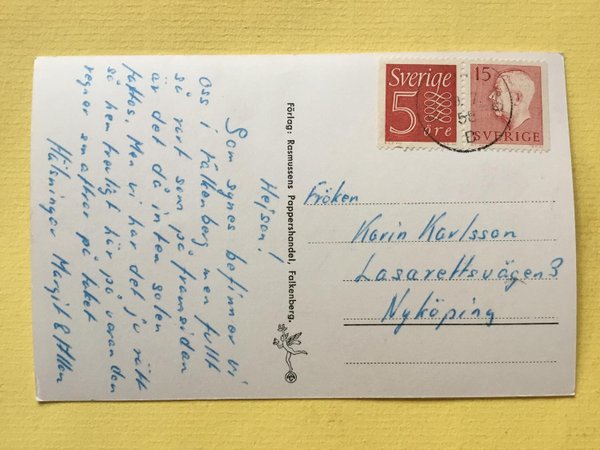 Hejsan!
Som synes befinner vi
oss i Falkenberg men fullt
så rart som på framsidan
är det då inte solen
fattas. Men vi har det ju rätt
så hemtrevligt här på verandan
regnet smattrar på taket
Hälsningar Margit &
Förlag: Rasmussens Pappershandel, Falkenberg.
Sverige
5
öre
15
SVERIGE
58
B
Fröken
Karin Karlsson
Lasarettsvägen 3
Nyköping